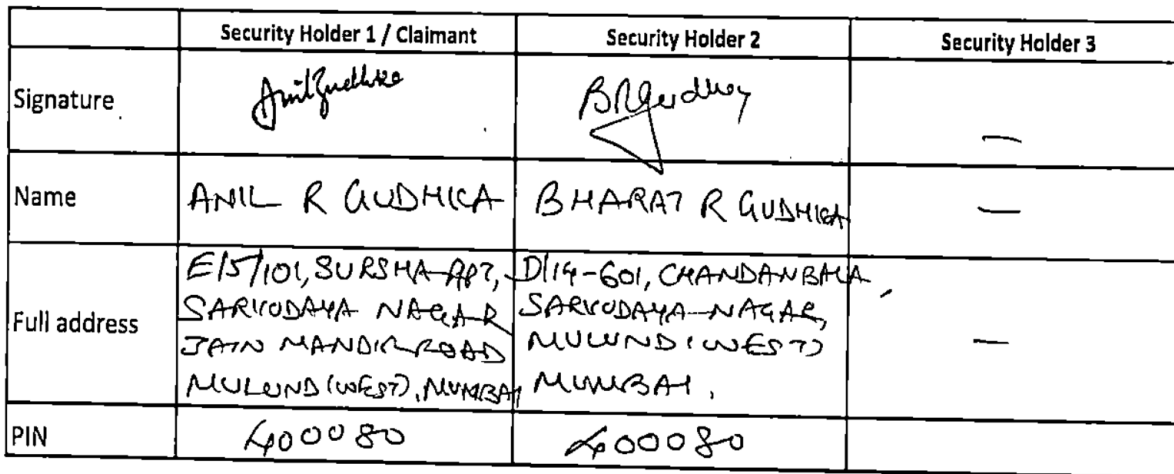 Security Holder 1 / Claimant Security Holder 2 Security Holder 3
Signature
Name ANIL R GUDHKA BHARAT R GUDHKA —
Full address
E/5/101, SURSHA APT,
SARVODAYA NAGAR
JAIN MANDIR ROAD
MULUND (WEST), MUMBAI
D/14-601, CHANDANBALA,
SARVODAYA NAGAR,
MULUND (WEST)
MUMBAI.
—
PIN 400080 400080